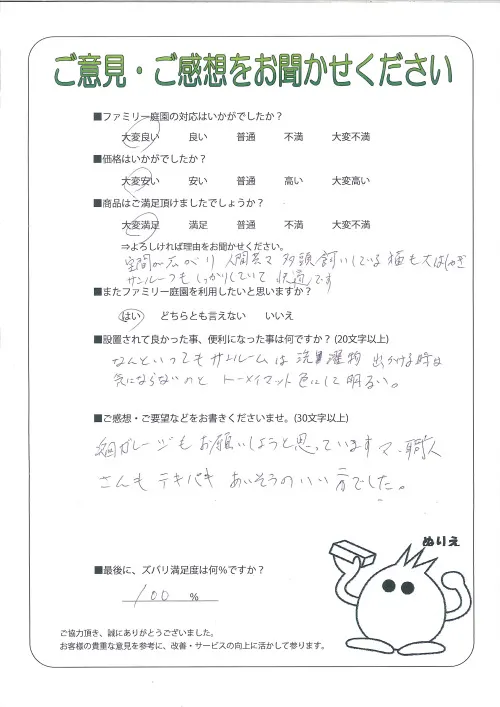 ご意見・ご感想をお聞かせください
■ファミリー庭園の対応はいかがでしたか？
大変良い 良い 普通 不満 大変不満
■価格はいかがでしたか？
大変安い 安い 普通 高い 大変高い
■商品はご満足頂けましたでしょうか？
大変満足 満足 普通 不満 大変不満
⇒よろしければ理由をお聞かせください。
空間が広がり 人間共々 多頭飼いしている猫も大はしゃぎ
サンルーフもしっかりしていて 快適です
■またファミリー庭園を利用したいと思いますか？
はい どちらとも言えない いいえ
■設置されて良かった事、便利になった事は何ですか？(20文字以上)
なんといってもサンルームは 洗濯物 出かける時は
気にならないのと トーメイマット色にして 明るい。
■ご感想・ご要望などをお書きくださいませ。(30文字以上)
次回ガレージもお願いしようと思っています 職人
さんも テキパキ あいそうのいい 方でした。
ぬりえ
■最後に、ズバリ満足度は何％ですか？
100 %
ご協力頂き、誠にありがとうございました。
お客様の貴重な意見を参考に、改善・サービスの向上に活かして参ります。